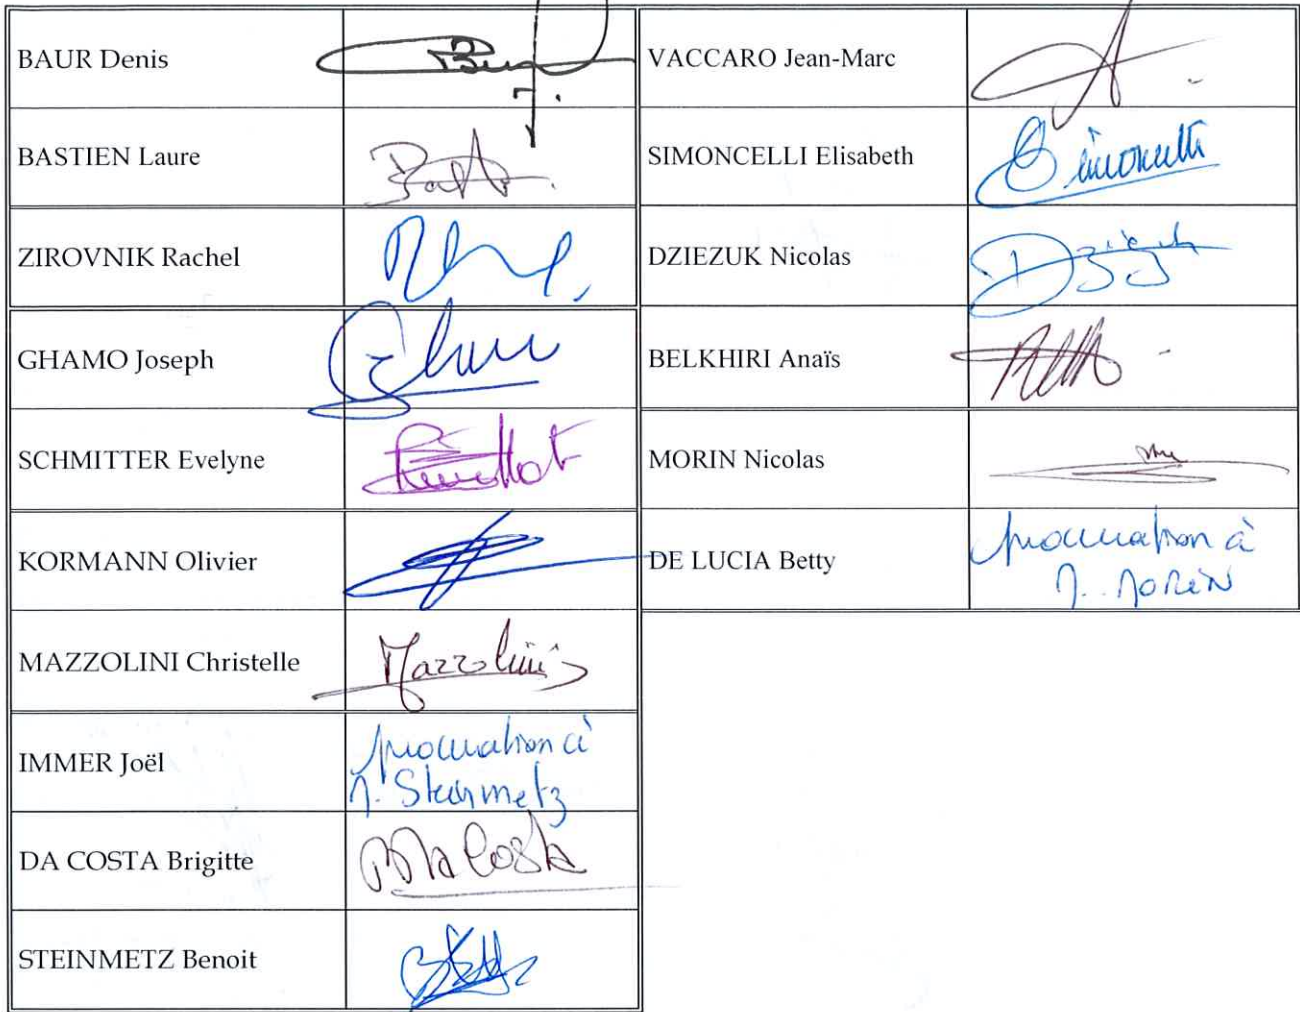 BAUR Denis
BASTIEN Laure
ZIROVNIK Rachel
GHAMO Joseph
SCHMITTER Evelyne
KORMANN Olivier
MAZZOLINI Christelle
Mazzolini
IMMER Joël
procuration à
M. Steinmetz
DA COSTA Brigitte
Da Costa
STEINMETZ Benoit
VACCARO Jean-Marc
SIMONCELLI Elisabeth
Simoncelli
DZIEZUK Nicolas
BELKHIRI Anaïs
MORIN Nicolas
DE LUCIA Betty
procuration à
M. MORIN